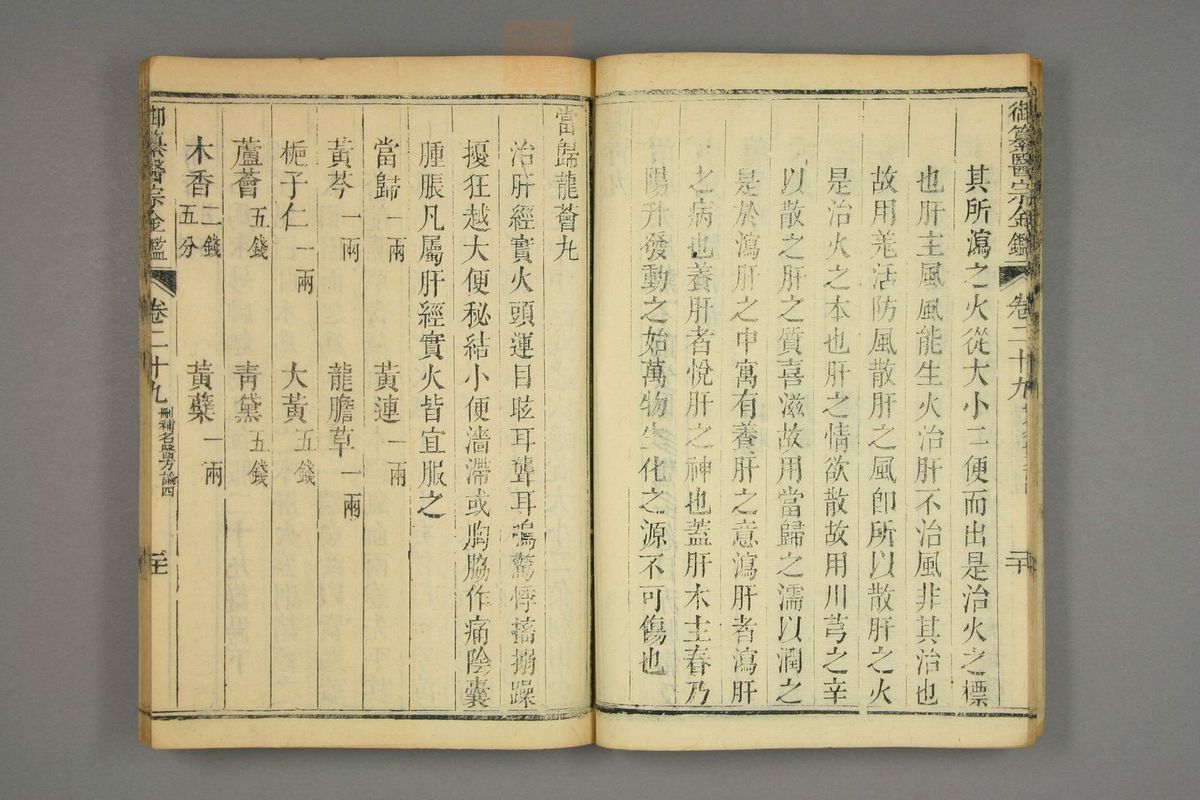 御纂醫宗金鑑 卷二十九
二十
其所瀉之火從大小二便而出是治火之標
也肝主風風能生火治肝不治風非其治也
故用羗活防風散肝之風卽所以散肝之火
是治火之本也肝之情欲散故用川芎之辛
以散之肝之質喜滋故用當歸之濡以潤之
是於瀉肝之中寓有養肝之意瀉肝者瀉肝
之病也養肝者悅肝之神也蓋肝木主春乃
陽升發動之始萬物生化之源不可傷也
當歸龍薈丸
治肝經實火頭運目眩耳聾耳鳴驚悸搐搦躁
擾狂越大便秘結小便濇滯或胸脇作痛陰囊
腫脹凡屬肝經實火皆宜服之
當歸一兩 黃連一兩
黃芩一兩 龍膽草一兩
梔子仁一兩 大黃五錢
蘆薈五錢 青黛五錢
木香二錢五分 黃蘗一兩
御纂醫宗金鑑 卷二十九 刪補名醫方論四